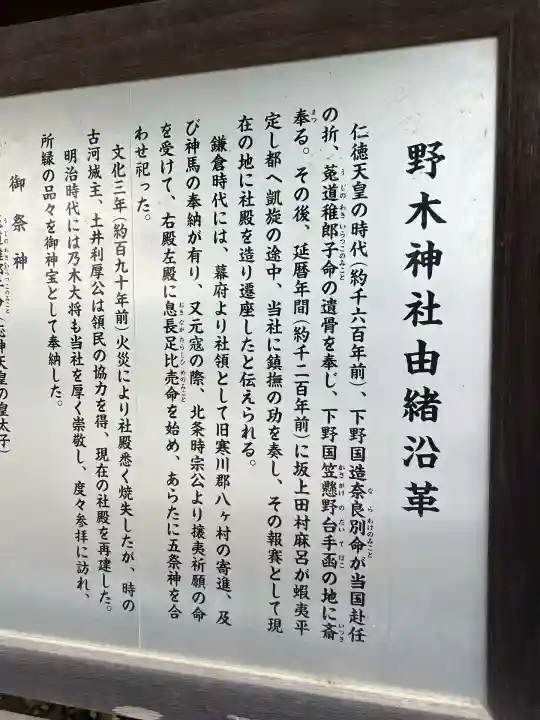 野木神社由緒沿革
仁徳天皇の時代(約千六百年前)、下野国造奈良別命が当国赴任
の折、莵道稚郎子命の遺骨を奉じ、下野国笠懸野台手函の地に斎
奉る。その後、延暦年間(約千二百年前)に坂上田村麻呂が蝦夷平
定し都へ凱旋の途中、当社に鎮撫の功を奏し、その報賽として現
在の地に社殿を造り遷座したと伝えられる。
鎌倉時代には、幕府より社領として旧寒川郡八ヶ村の寄進、及
び神馬の奉納が有り、又元寇の際、北条時宗公より攘夷祈願の命
を受けて、右殿左殿に息長足比売命を始め、あらたに五祭神を合
わせ祀った。
文化三年(約百九十年前)火災により社殿悉く焼失したが、時の
古河城主、土井利厚公は領民の協力を得、現在の社殿を再建した。
明治時代には乃木大将も当社を厚く崇敬し、度々参拝に訪れ、
所縁の品々を御神宝として奉納した。
御祭神
(応神天皇の皇太子)